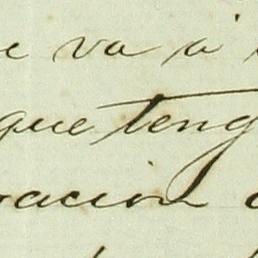 e va á
que teng
racion